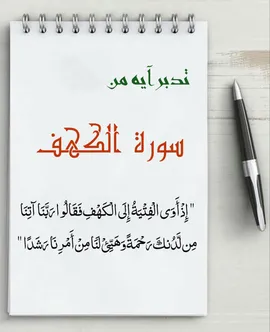 تدبر آيه من
سورة الكهف
"إِذْ أَوَى الْفِتْيَةُ إِلَى الْكَهْفِ فَقَالُوا رَبَّنَا آتِنَا
مِن لَدُنكَ رَحْمَةً وَهَيِّئْ لَنَا مِنْ أَمْرِنَا رَشَدًا"